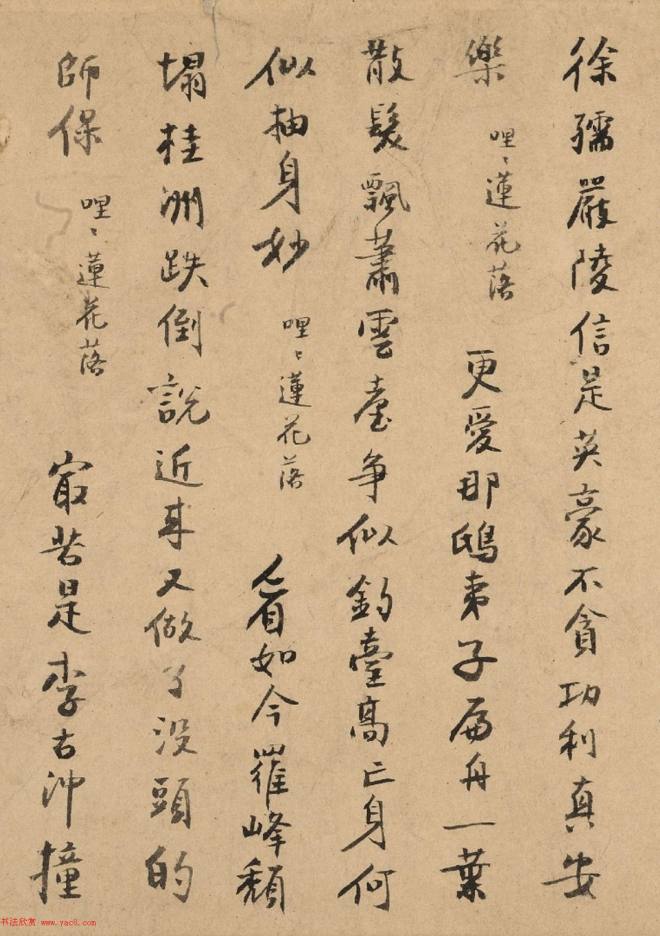 徐孺嚴陵信是英豪不貪功利真安
樂 哩〻蓮花落 更愛那鴟夷子扁舟一葉
散髮飄蕭雲臺爭似釣臺高亡身何
似抽身妙 哩〻蓮花落 看如今羅峰頹
塌桂洲跌倒說近來又做了沒頭的
師保 哩〻蓮花落 最苦是李古沖撞
书法欣赏 www.yac8.com